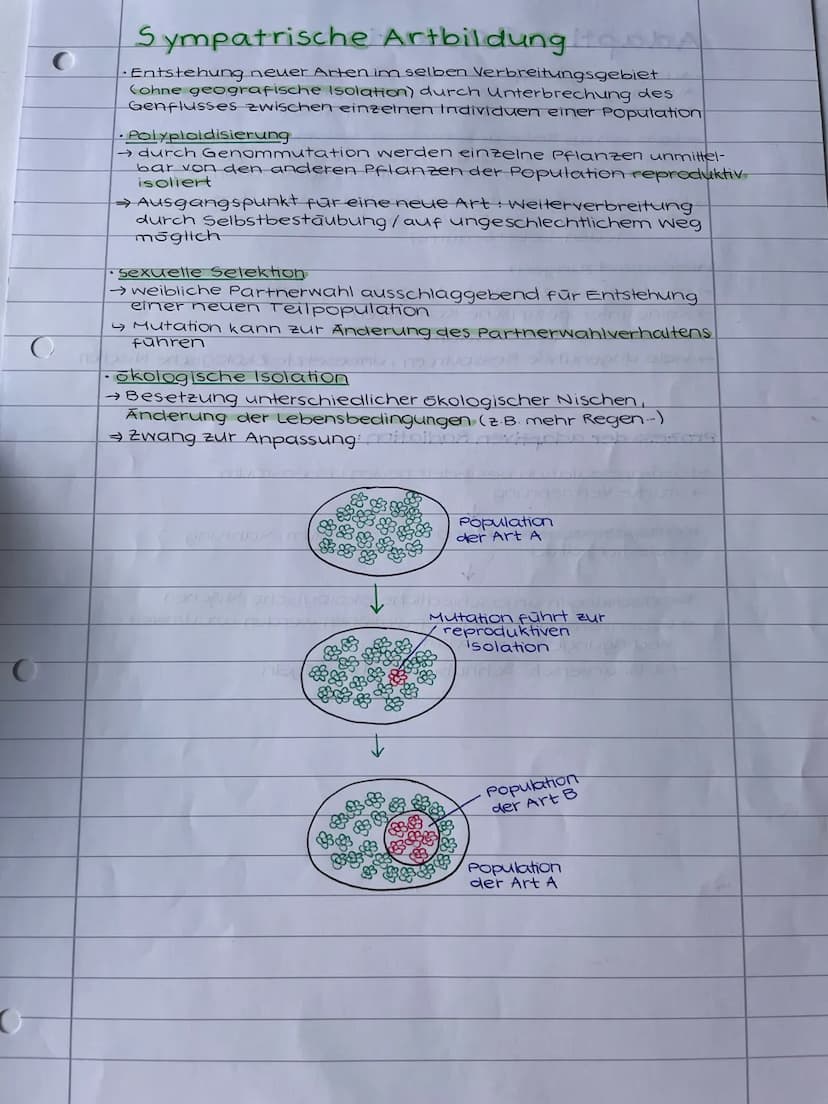 Sympatrische Artbildung
· Entstehung neuer Arten im selben Verbreitungsgebiet
(ohne geografische Isolation) durch Unterbrechung des
Genflusses zwischen einzelnen Individuen einer Population
· Polyploidisierung
→ durch Genommutation werden einzelne Pflanzen unmittel-
bar von den anderen Pflanzen der Population reproduktiv
isoliert
⇒ Ausgangspunkt für eine neue Art: Weiterverbreitung
durch Selbstbestäubung / auf ungeschlechtlichem Weg
möglich
· sexuelle Selektion
→ weibliche Partnerwahl ausschlaggebend für Entstehung
einer neuen Teilpopulation
↳ Mutation kann zur Änderung des Partnerwahlverhaltens
führen
· ökologische Isolation
→ Besetzung unterschiedlicher ökologischer Nischen,
Änderung der Lebensbedingungen (z.B. mehr Regen--)
⇒ Zwang zur Anpassung
Population
der Art A
Mutation führt zur
reproduktiven
Isolation
Population
der Art B
Population
der Art A